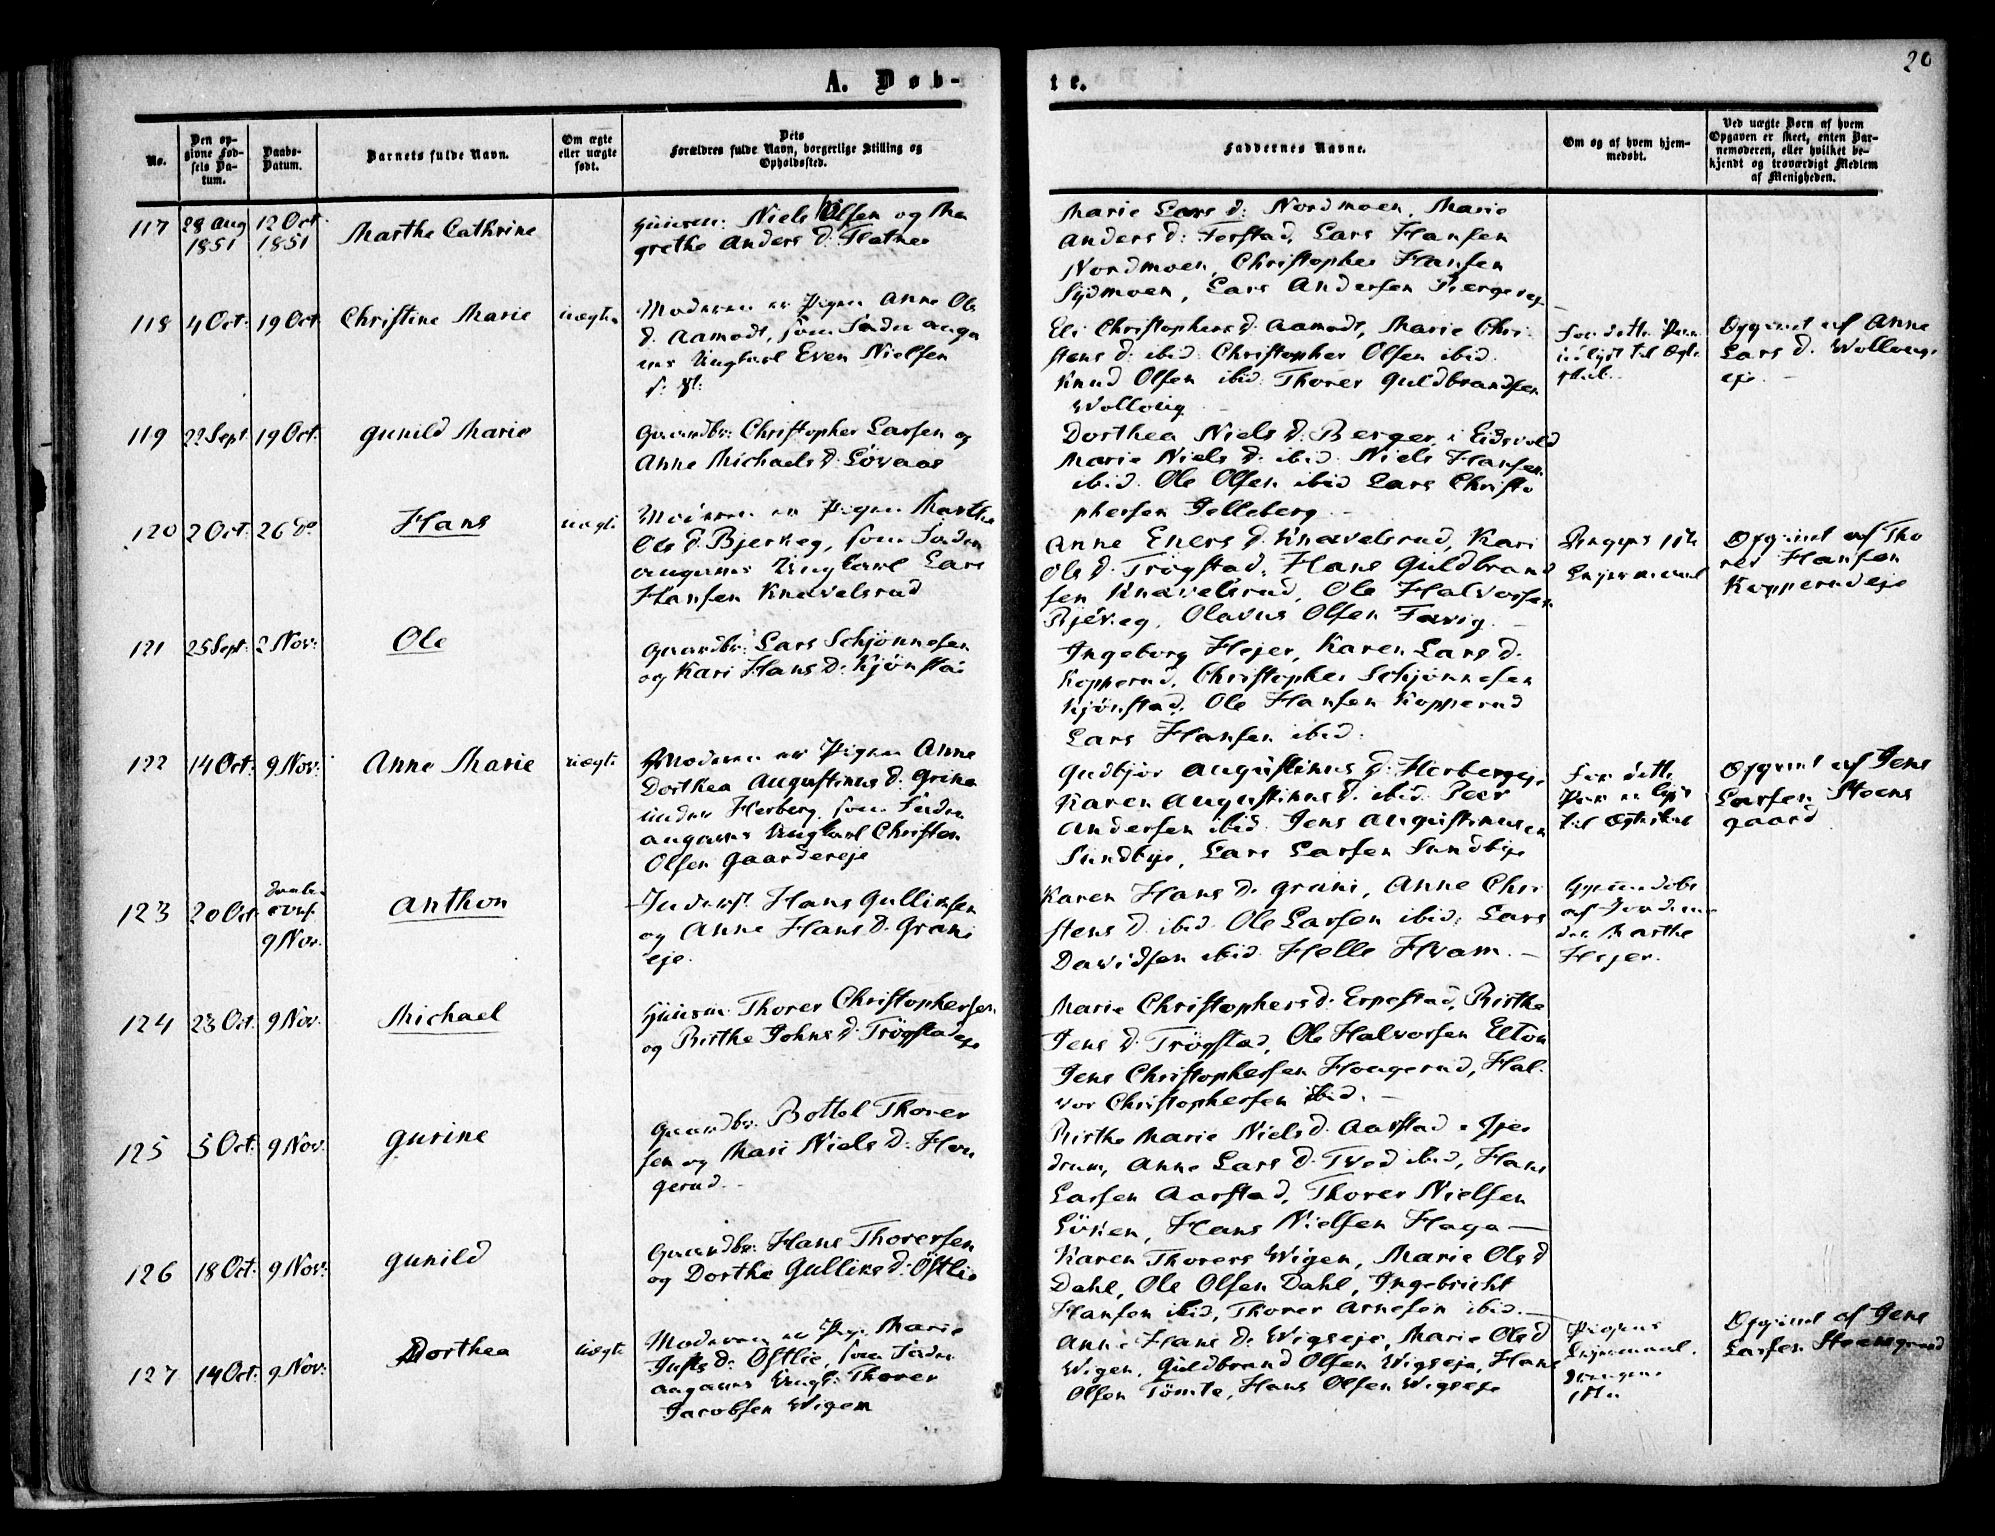 20
A. Døb-
te.
No.
Den op-
givne Fød-
sels Da-
tum.
Daabs-
Datum.
Barnets fulde Navn.
Om ægte
eller uægte
født.
Dets
Forældres fulde Navn, borgerlige Stilling og
Opholdssted.
Faddernes Navne.
Om og af hvem hjem-
medøbt.
Ved uægte Børn af hvem
Opgaven er skeet, enten Bar-
nemoderen, eller hvilket be-
kjendt og troværdigt Medlem
af Menigheden.
117
28 Aug
1851
12 Oct
1851
Marthe Cathrine
Huusm: Niels Olsen og Ma
grethe Anders D: Flatner
Marie Lars d: Nordmoen, Marie
Anders d: Forstad, Lars Hansen
Nordmoen, Christopher Hansen
Sydmoen, Lars Andersen
118
4 Oct:
19 Oct
Christine Marie
uægte
Moderen er Pigen Anne Ols
d. Aamodt, som Fader angi
ves Ungkarl Even Nielsen
Eli Christophers d: Aamodt, Marie Chri
stens d: ibid: Christopher Olsen ibid.
Knud Olsen ibid: Thorer Guldbrandsen
Wollaug
For dette Par
til Ægte
skab.
Opgivet af Anne
Lars d.
eje. -
119
22 Sept
19 Oct:
Gunild Marie
Gaardbr: Christopher Larsen og
Anne Michaels D: Løvaas
Dorthea Niels D: Berger i Eidsvold
Marie Niels D: ibid: Niels Hansen
ibid. Ole Olsen ibid Lars Christo
phersen Jelleberg. -
120
2 Oct:
26 do
Hans
uægte
Moderen er Pigen Marthe
Ols d: Bjerkeg, som Fader
angives Ungkarl Lars
Hansen Knavelsrud
Anne Eners D. Knavelsrud, Kari
Ols d: Trögstad, Hans Guldbrand
sen Knavelsrud, Ole Halvorsen
Bjerkeg, Olavus Olsen
Lejermaal
Opgivet af Tho
rer Hansen
Kopperudeje
121
25 Sept:
2 Nov:
Ole
Gaardbr: Lars Schjønnesen
og Kari Hans D: Kjønstad
Ingeborg Hejer, Karen Lars d.
Kopperud, Christopher Schjønnesen
Kjønstad, Ole Hansen Kopperud
Lars Hansen ibid.
122
14 Oct:
9 Nov:
Anne Marie
uægte
Moderen er Pigen Anne
Dorthea Augustinus d: Grina
under Herberg, som Fader
angives Ungkarl Christen
Olsen Gaardereje
Gudbjør Augustinus D: Herbergeje
Karen Augustinus d. ibid. Peer
Andersen ibid Jens Augustinusen
Sundbye, Lars Larsen Sundbye
For dette
Par er lyst
til Ægteskab
Opgivet af Jens
Larsen Steens
gaard
123
20 Oct
9 Nov.
Anthon
Inderst Hans Gulliksen
og Anne Hans D: Grani
eje.
Karen Hans D: Grani, Anne Chri
stens D. ibid. Ole Larsen ibid: Lars
Davidsen ibid. Helle Hvam. -
Hjemmedøbt
af
Marthe
Hejer.
124
23 Oct.
9 Nov.
Michael
Huusm Thorer Christophersen
og Birthe Johns D: Trögstadeje
Marie Christophers d: Erpestad, Birthe
Jens D: Trögstad, Ole Halvorsen Elton
Jens Christophersen Hougerud, Hal-
vor Christophersen ibid. -
125
5 Oct.
9 Nov.
Gurine
Gaardbr. Bottol Thorer
sen og Mari Niels D: Hou
gerud. -
Birthe Marie Niels d. Aarstad i Gjer
drum, Anne Lars D: Tved ibid, Hans
Larsen Aarstad, Thorer Nielsen
Löken, Hans Nielsen Haga -
126
18 Oct.
9 Nov:
Gunild
Gaardbr: Hans Thorersen
og Dorthe Gulliks d: Östlie
Karen Thorers Wigen, Marie Ols D
Dahl, Ole Olsen Dahl, Ingebricht
Hansen ibid, Thorer Arnesen ibid. -
127
14 Oct:
9 Nov:
Dorthea
uægte
Moderen er Pig: Marie
Justs D: Östlie, som Fader
angives Ungk: Thorer
Jacobsen Wigen
Anne Hans D: Wigseje, Marie Ols d
Wigen, Guldbrand Olsen Wigseje, Hans
Olsen Tömte, Hans Olsen Wigseje
Pigens
Lejermaal.
Opgivet af Jens
Larsen Steensgaard